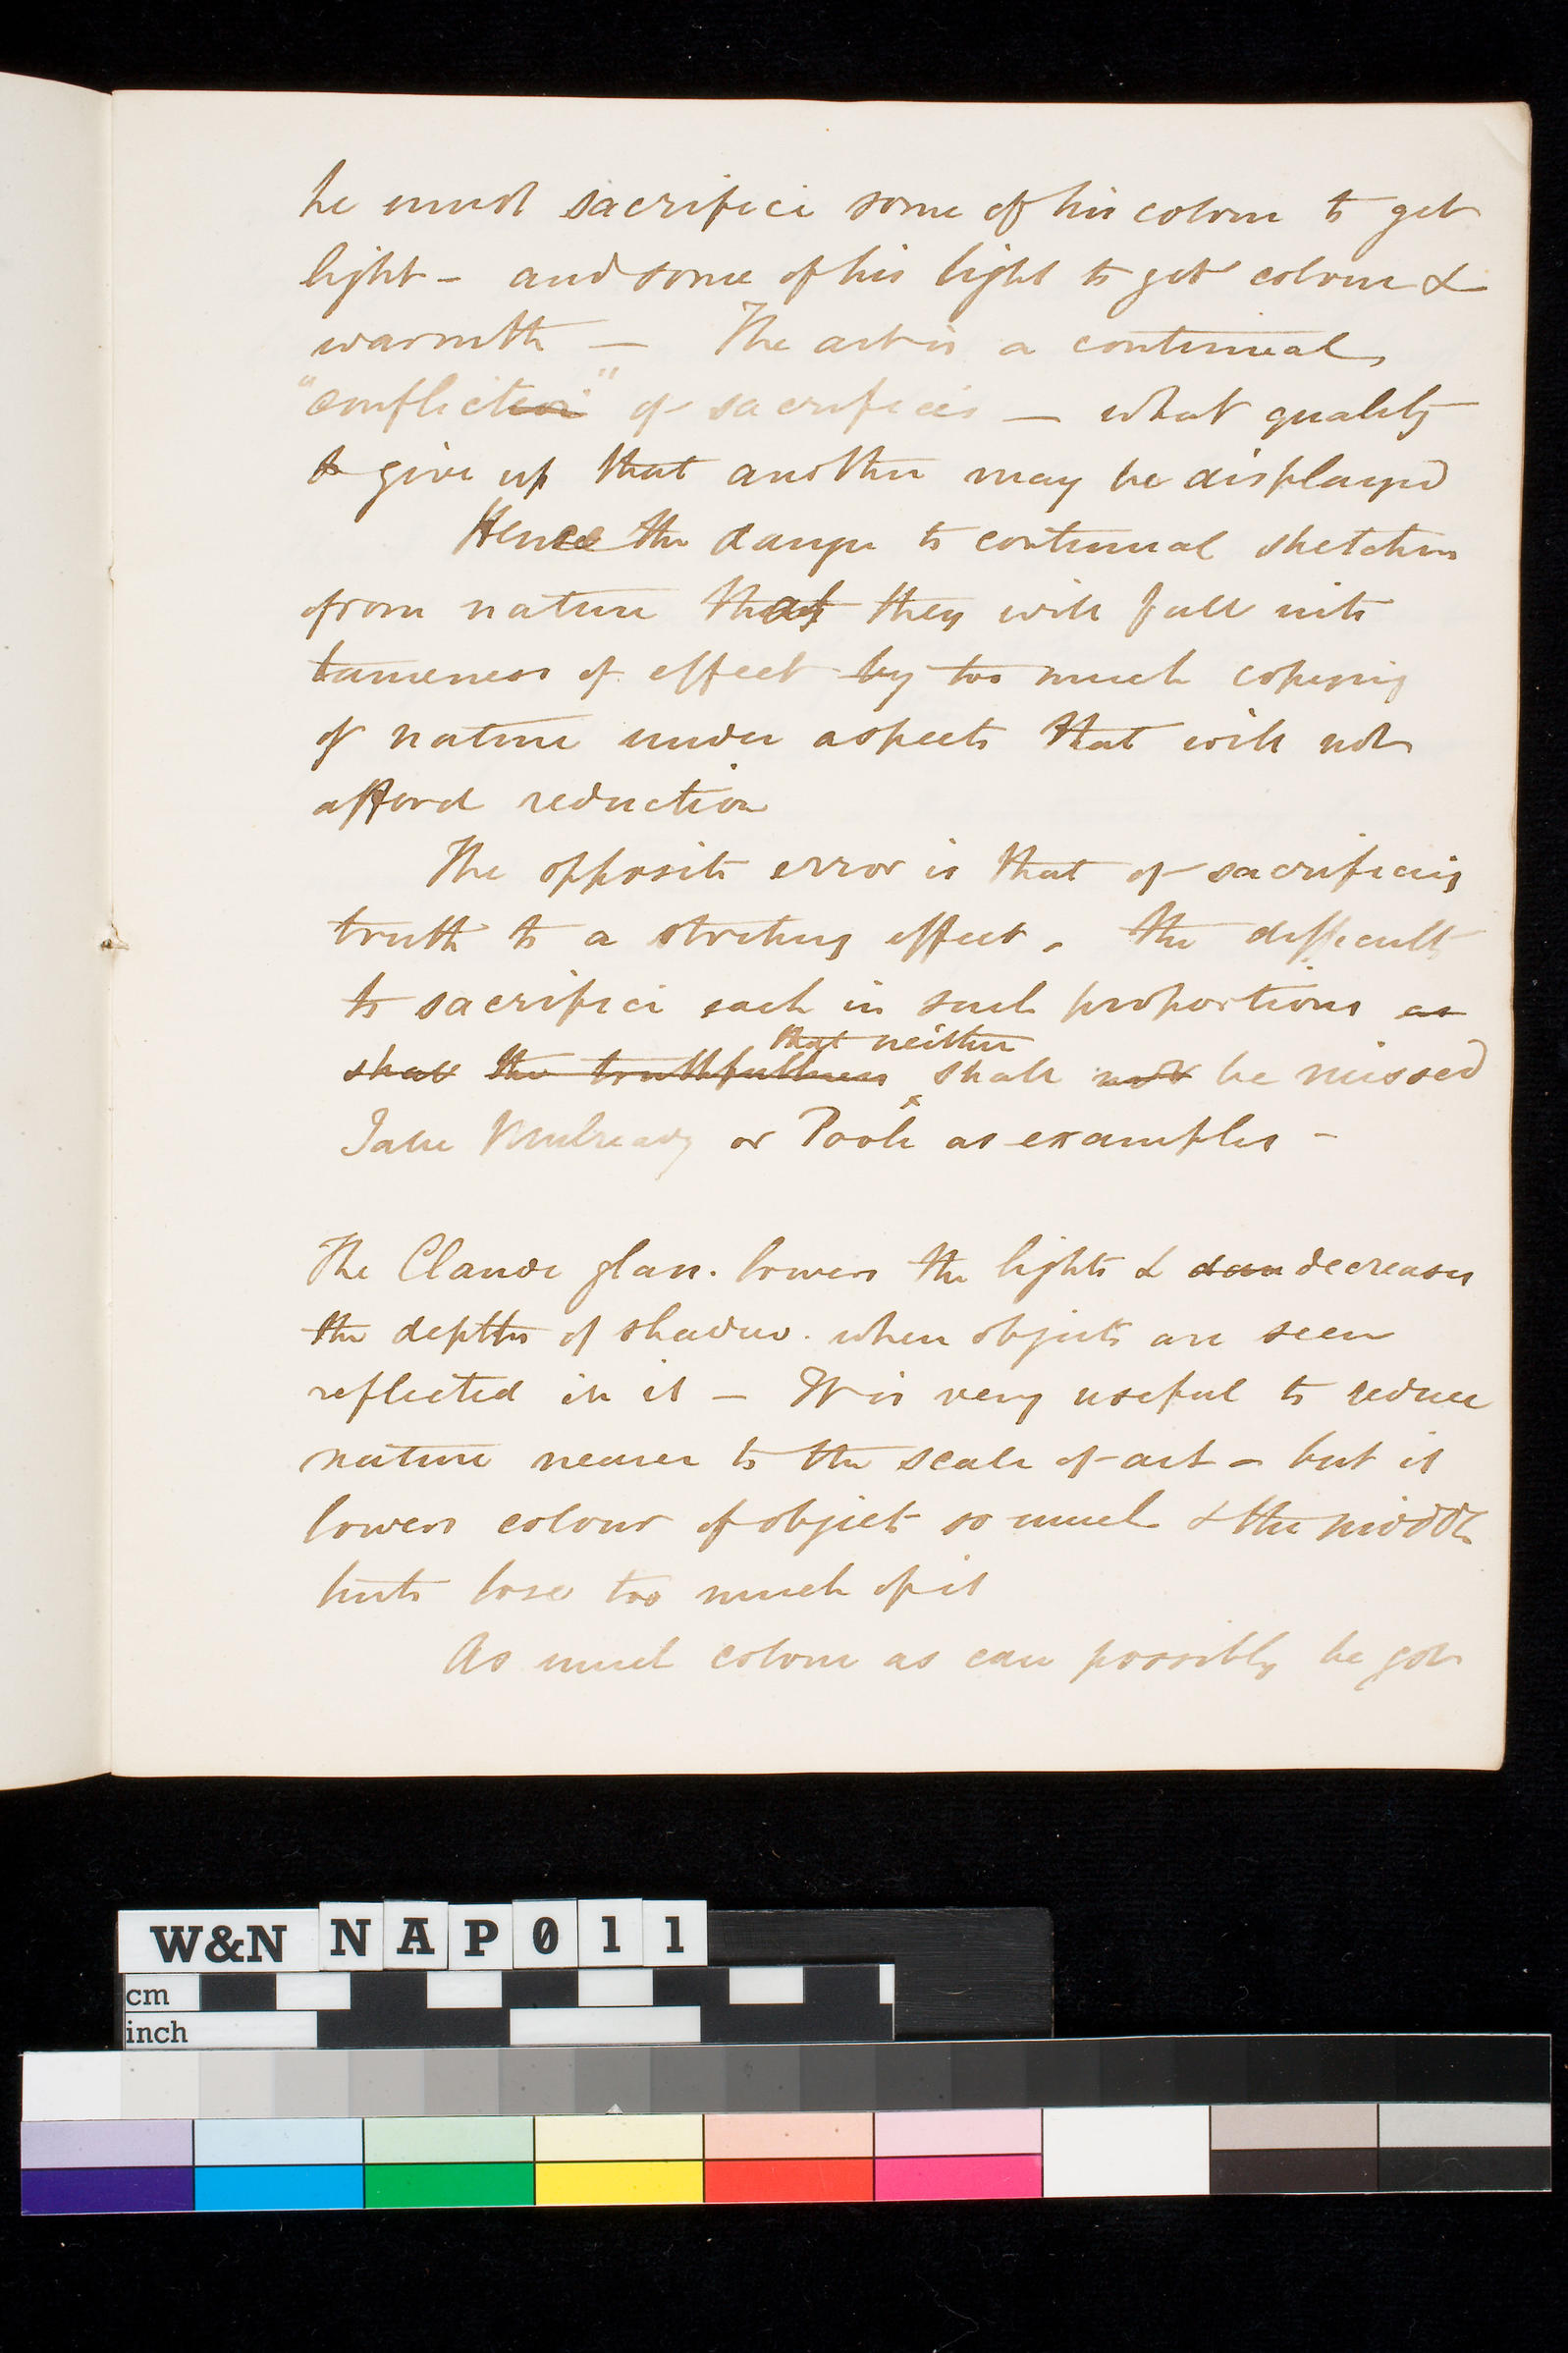 he must sacrifice some of his colour to get
light - and some of his light to get colour &
warmth — The art is a continual
"confliction" of sacrifices — what quality
to give up that another may be displayed
Hence the danger to continual sketchers
from nature that they will fall into
tameness of effect by too much copying
of nature under aspects that will not
afford reduction
The opposite error is that of sacrificing
truth to a striking effect. The difficulty
to sacrifice each in such proportions as
that neither
shall the truthfullness shall not be missed
Take Mulready or Poole as examples -
The Claude glass. lowers the lights & decreases
the depths of shadow. when objects are seen
reflected in it — It is very useful to reduce
nature nearer to the scale of art - but it
lowers colour of object so much & the middle
tints lose too much of it
As much colour as can possibly be got
W&N NAP011
cm
inch